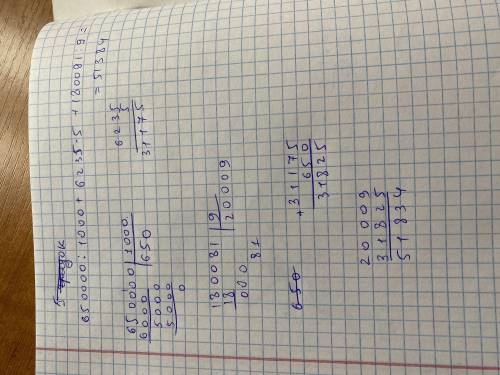 650000:1000+6235·5+180091:9=
=51384
650000 | 1000
6000 | 650
5000
5000
0
6235
5
31175
180081 | 9
18 | 20009
000
81
650
+31175
650
31825
20009
31825
51834